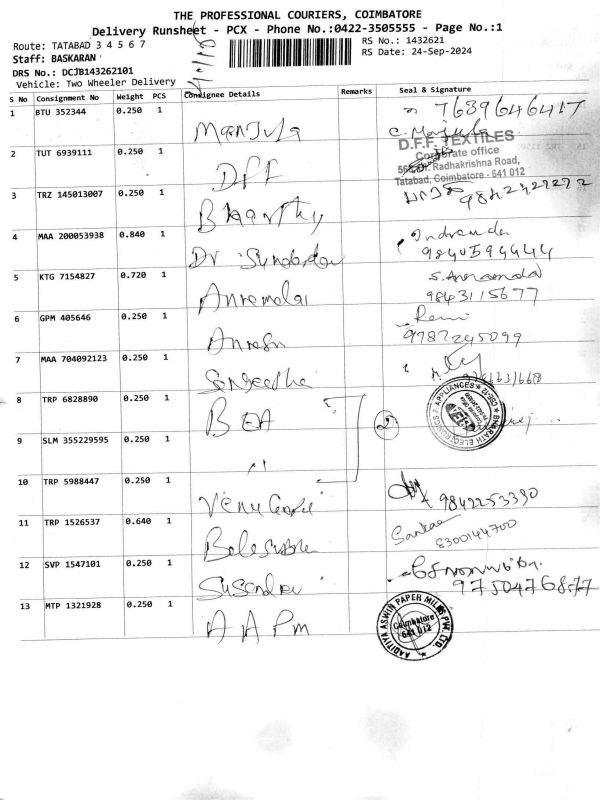 THE PROFESSIONAL COURIERS, COIMBATORE
Delivery Runsheet - PCX - Phone No.:0422-3505555 - Page No.:1
Route: TATABAD 3 4 5 6 7
RS No.: 1432621
Staff: BASKARAN
RS Date: 24-Sep-2024
DRS No.: DCJB143262101
Vehicle: Two Wheeler Delivery
S No Consignment No Weight PCS Consignee Details Remarks Seal & Signature
1 BTU 352344 0.250 1 Manjula 7639646417
C. Manjula
2 TUT 6939111 0.250 1 DFF
D.F.F. TEXTILES
Corporate office
Dr. Radhakrishna Road,
Tatabad, Coimbatore - 641 012
3 TRZ 145013007 0.250 1 Bharathy 9842422272
4 MAA 200053938 0.840 1 Dr
9840594444
5 KTG 7154827 0.720 1 Annamalai
S. Annamalai
9843115677
6 GPM 405646 0.250 1
9987245099
7 MAA 704092123 0.250 1 Sangeetha
8 TRP 6828890 0.250 1 BEA 2
BHARATH ELECTRONICS & APPLIANCES
9 SLM 355229595 0.250 1 "
10 TRP 5988447 0.250 1 Venu Gopal 9842253390
11 TRP 1526537 0.640 1
Sankar
8300144700
12 SVP 1547101 0.250 1
9750476877
13 MTP 1321928 0.250 1 AAPM
AADITIYA ASWIN PAPER MILLS PVT LTD.
Coimbatore
641 012